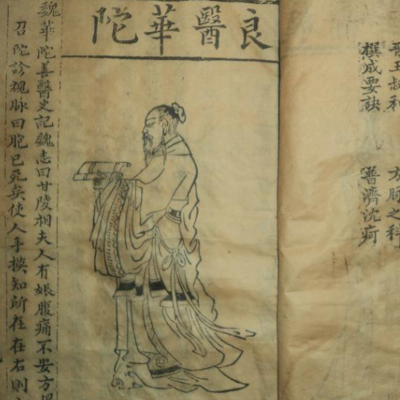 王叔和
方脉之科
撰成要訣
普濟沈疴
良醫華陀
魏華陀善醫史記魏志曰甘陵相夫人有娠腹痛不安方
召陀診視脉曰胞已死矣使人手摸知所在在右則